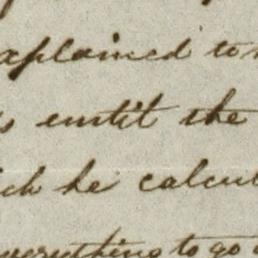 xplained to
until the
ich he calcul
everything to go